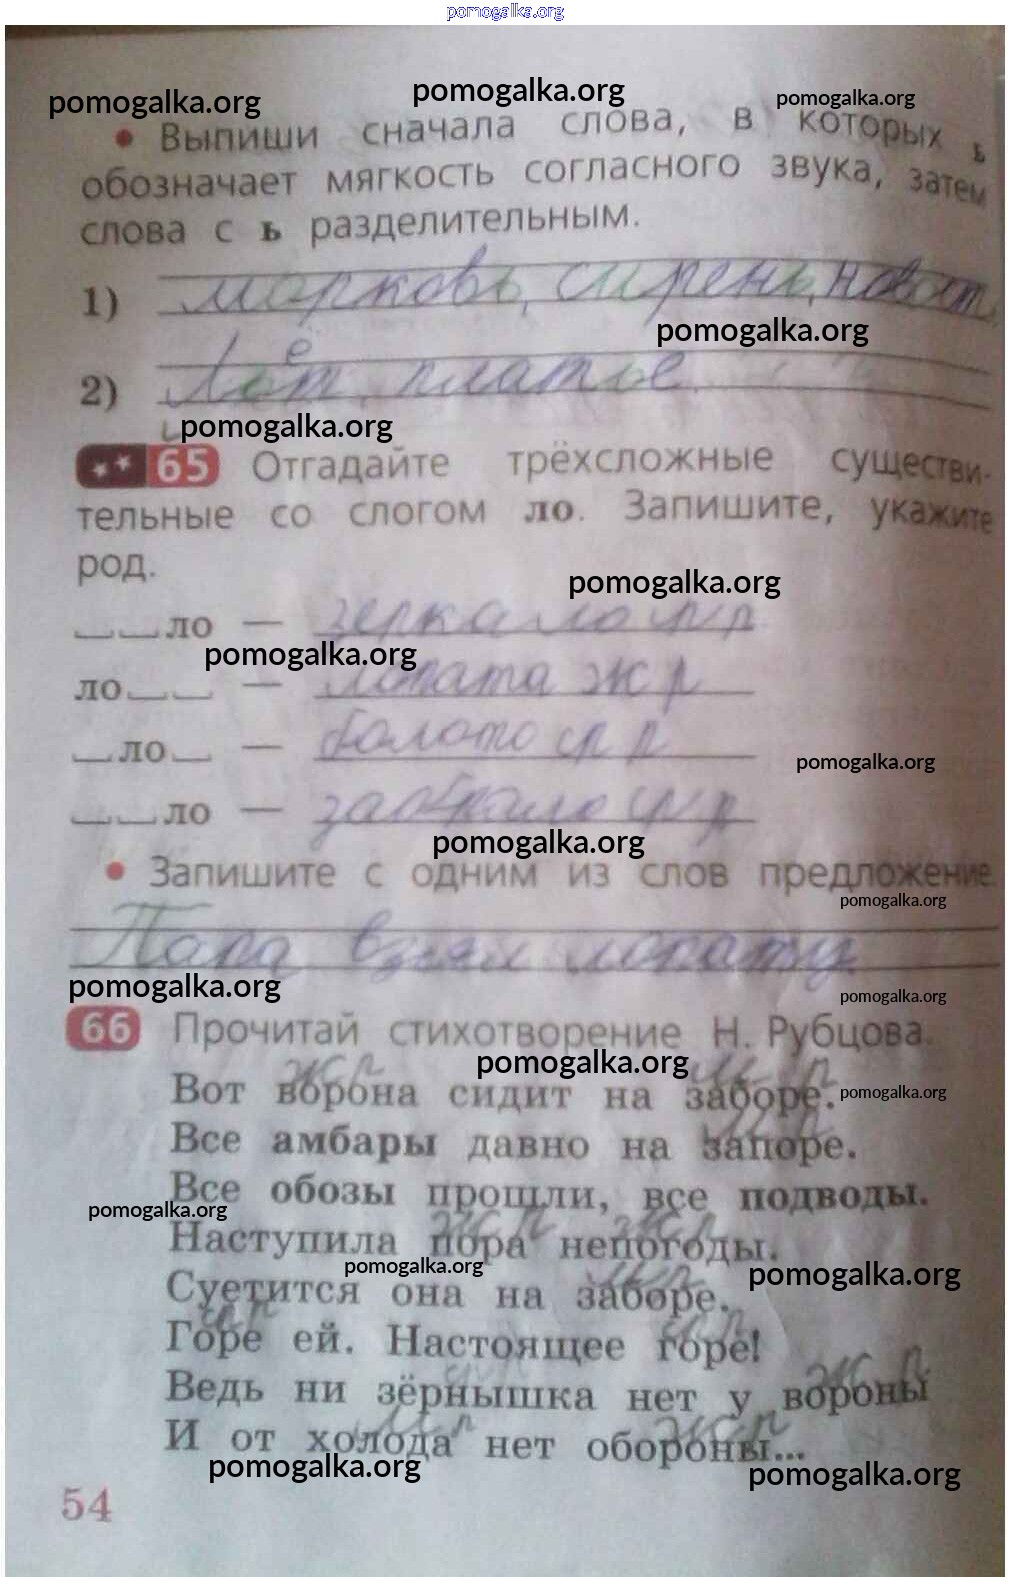 pomogalka.org
pomogalka.org pomogalka.org pomogalka.org
• Выпиши сначала слова, в которых ь
обозначает мягкость согласного звука, затем
слова с ь разделительным.
1) морковь, сирень,
pomogalka.org
2) льёт, платье.
pomogalka.org
65 Отгадайте трёхсложные существи-
тельные со слогом ло. Запишите, укажите
род.
pomogalka.org
ло — зеркало ср р
pomogalka.org
ло — лопата ж р
ло — болото ср р
pomogalka.org
ло — забрало ср р
pomogalka.org
• Запишите с одним из слов предложение.
pomogalka.org
Папа взял лопату
pomogalka.org pomogalka.org
66 Прочитай стихотворение Н. Рубцова.
pomogalka.org
ж р м р
Вот ворона сидит на заборе.
pomogalka.org
м р
Все амбары давно на запоре.
Все обозы прошли, все подводы.
pomogalka.org
ж р ж р
Наступила пора непогоды.
pomogalka.org pomogalka.org
м р
Суетится она на заборе.
ср р ср р
Горе ей. Настоящее горе!
ср р ж р
Ведь ни зёрнышка нет у вороны
м р ж р
И от холода нет обороны...
pomogalka.org pomogalka.org
54